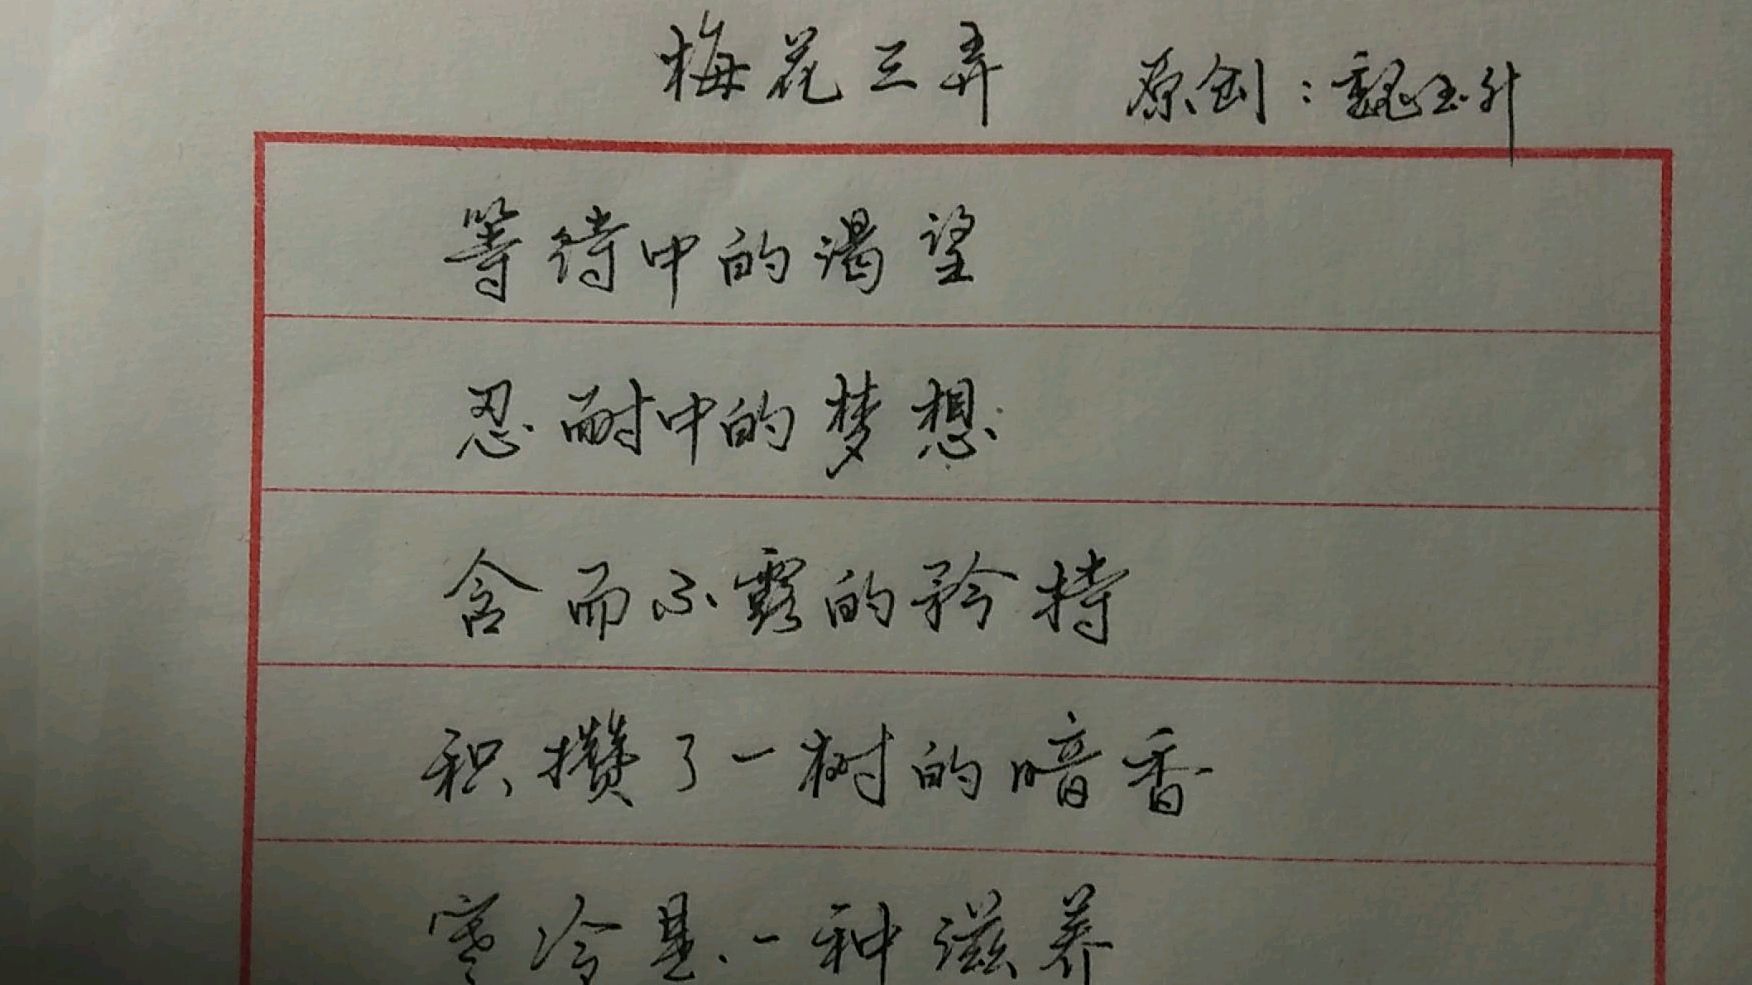 梅花三弄 原创：魏玉升
等待中的渴望
忍耐中的梦想
含而不露的矜持
积攒了一树的暗香
寒冷是一种滋养